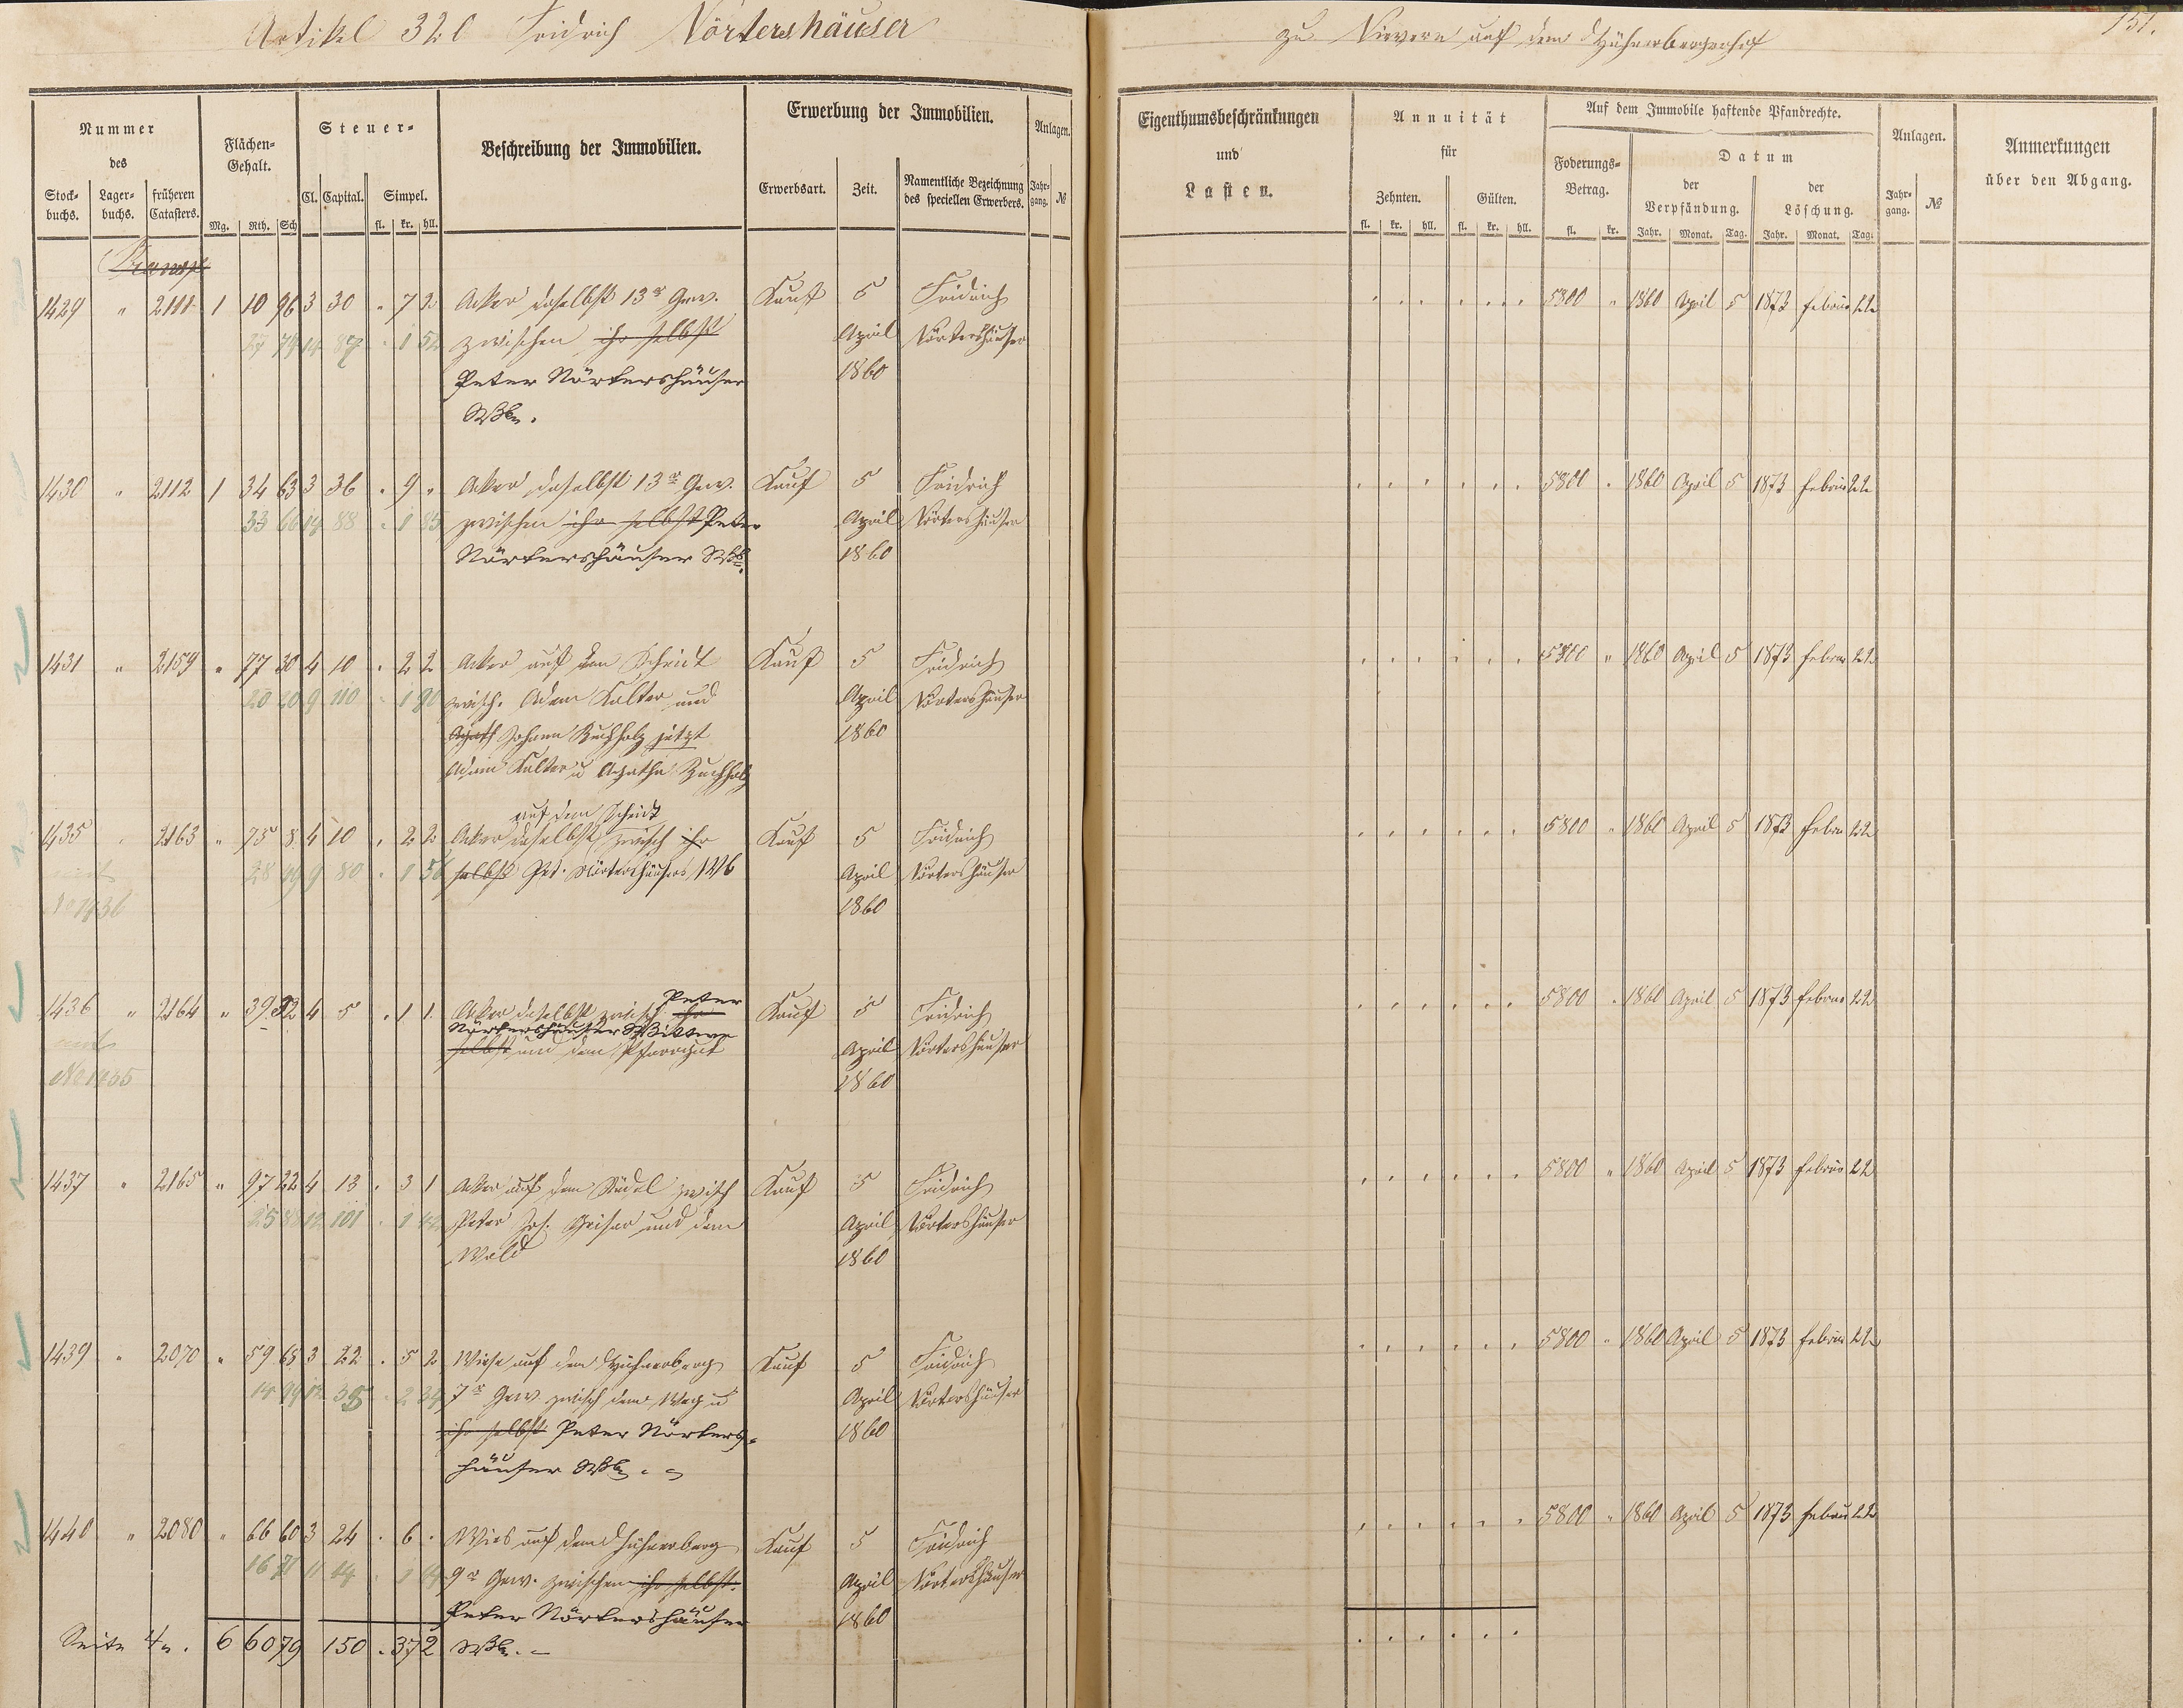 Artikel 320 Fridrich Nörtershäuser
zu Nievern auf dem Hühnerbergerhof
151.
Nummer des
Stock-buchs. Lager-buchs. früheren Catasters.
Flächen-Gehalt.
Mg. Rth. Sch
Steuer-
Cl. Capital. Simpel.
fl. kr. hll.
Beschreibung der Immobilien.
Erwerbung der Immobilien.
Erwerbsart. Zeit. Namentliche Bezeichnung des speciellen Erwerbers.
Anlagen.
Jahr-gang. №
Eigenthumsbeschränkungen
und
Lasten.
Annuität
für
Zehnten. Gülten.
fl. kr. hll. fl. kr. hll.
Auf dem Immobile haftende Pfandrechte.
Foderungs-Betrag.
fl. kr.
Datum
der Verpfändung. der Löschung.
Jahr. Monat. Tag. Jahr. Monat. Tag.
Anlagen.
Jahr-gang. №
Anmerkungen
über den Abgang.
1429 " 2111 1 10 96 3 30 . 7 2 Acker daselbst 13r Gew. Kauf 5 Fridrich 5800 " 1860 April 5 1873 Februar 22
zwischen ihr selbst April Nörtershäuser
Peter Nörtershäuser 1860
Wbe.
1430 " 2112 1 34 63 3 36 . 9 " Acker daselbst 13r Gew. Kauf 5 Fridrich 5800 " 1860 April 5 1873 Februar 22
33 66 14 88 . 1 85 zwischen ihr selbst Peter April Nörtershäuser
Nörtershäuser Wb. 1860
1431 " 2159 " 77 30 4 10 . 2 2 Acker auf dem Scheidt Kauf 5 Fridrich 5800 " 1860 April 5 1873 Februar 22
zwisch. Adam Kalter und April Nörtershäuser
Johann Buchholz jetzt 1860
Adam Kalter u Agatha Buchholz
auf dem Scheidt
1435 2163 " 75 8 4 10 . 2 2 Acker daselbst zwisch ihr Kauf 5 Fridrich 5800 " 1860 April 5 1873 Februar 22
9 80 . 1 56 selbst Pet. Nörtershäusers Wb April Nörtershäuser
No 1436 1860
Peter
1436 " 2164 " 39 32 4 5 . 1 1 Acker daselbst zwisch ihr Kauf 5 Fridrich 5800 " 1860 April 5 1873 Februar 22
Nörtershäuser Wittwe
selbst und dem Pfarrgut April Nörtershäuser
No 1435 1860
1437 " 2165 " 97 22 4 13 . 3 1 Acker auf dem Südel zwisch Kauf 5 Fridrich 5800 " 1860 April 5 1873 Februar 22
Peter Jos. Geisar und dem April Nörtershäuser
Wald 1860
1439 " 2070 " 59 68 3 22 . 5 2 Wiese auf dem Hühnerberg Kauf 5 Fridrich 5800 " 1860 April 5 1873 Februar 22
7r Gew. zwisch dem Weg u April Nörtershäuser
ihr selbst Peter Nörters- 1860
häuser Wb.
1440 " 2080 " 66 60 3 24 . 6 . Wies auf dem Hühnerberg Kauf 5 Fridrich 5800 " 1860 April 5 1873 Februar 22
9r Gew. zwischen ihr selbst. April Nörtershäuser
Peter Nörtershäuser 1860
Seite 6 60 79 150 . 37 2 Wb. -